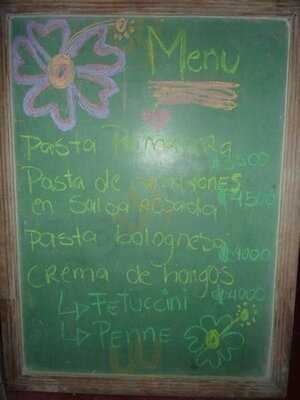 Menu
Pasta Primavera
₡3500
Pasta de camarones
en salsa rosada ₡4500
Pasta bolognesa
₡4000
Crema de hongos
↳ Fetuccini ₡4000
↳ Penne